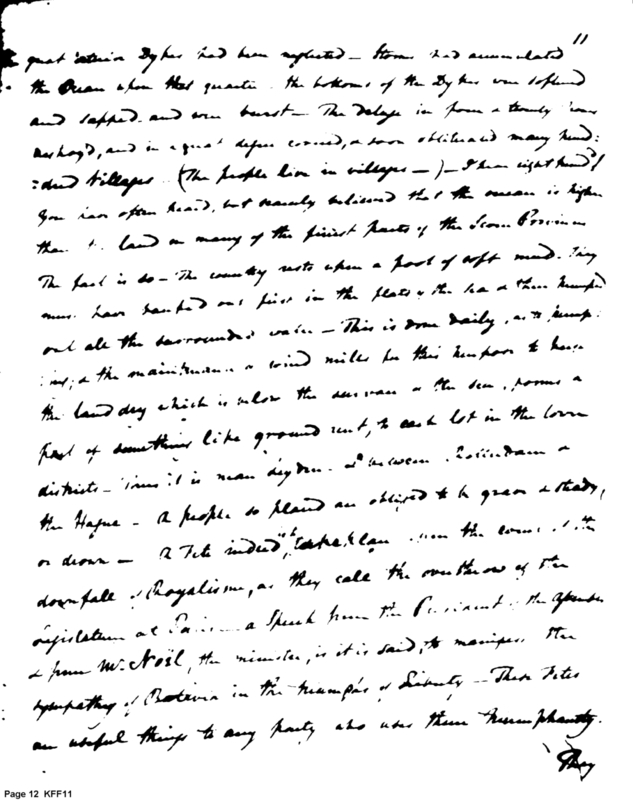 11
great exterior Dykes had been neglected – Storms had accumulated
the Ocean upon that quarter. the bottoms of the Dykes were softened
and sapped and were burst – The Deluge in from a twenty
and in a great degree covered, & soon obliterated many hund:
:dred Villages. (The people live in villages –) – I hear eight hund'd!
You have often heard, but scarcely believed that the ocean is higher
than the land on many of the finest parts of the Seven Provinces
The fact is so – The country rests upon a pool of soft mud. They
must have banked out first in the flats of the sea & then pumped
out all the surrounded water – This is done daily, as to pump:
:ing, & the maintenance of wind mills for this purpose to keep
the land dry which is below the surface of the sea, forms a
part of something like ground rent, to each lot in the low
districts – Thus it is near Leyden. & between Rotterdam &
the Hague – A people so placed are obliged to be grave & steady,
or drown – A Fete indeed, took place upon the news of the
downfall of Royalisme, as they call the overthrow of the
Legislature at Paris – a Speech from the President of the
& from Mr. Noël, the minister, is it is said, to manifest the
sympathy of Batavia in the triumphs of Liberty – These Fetes
are useful things to any party who uses them triumphantly.
They
Page 12 KFF11